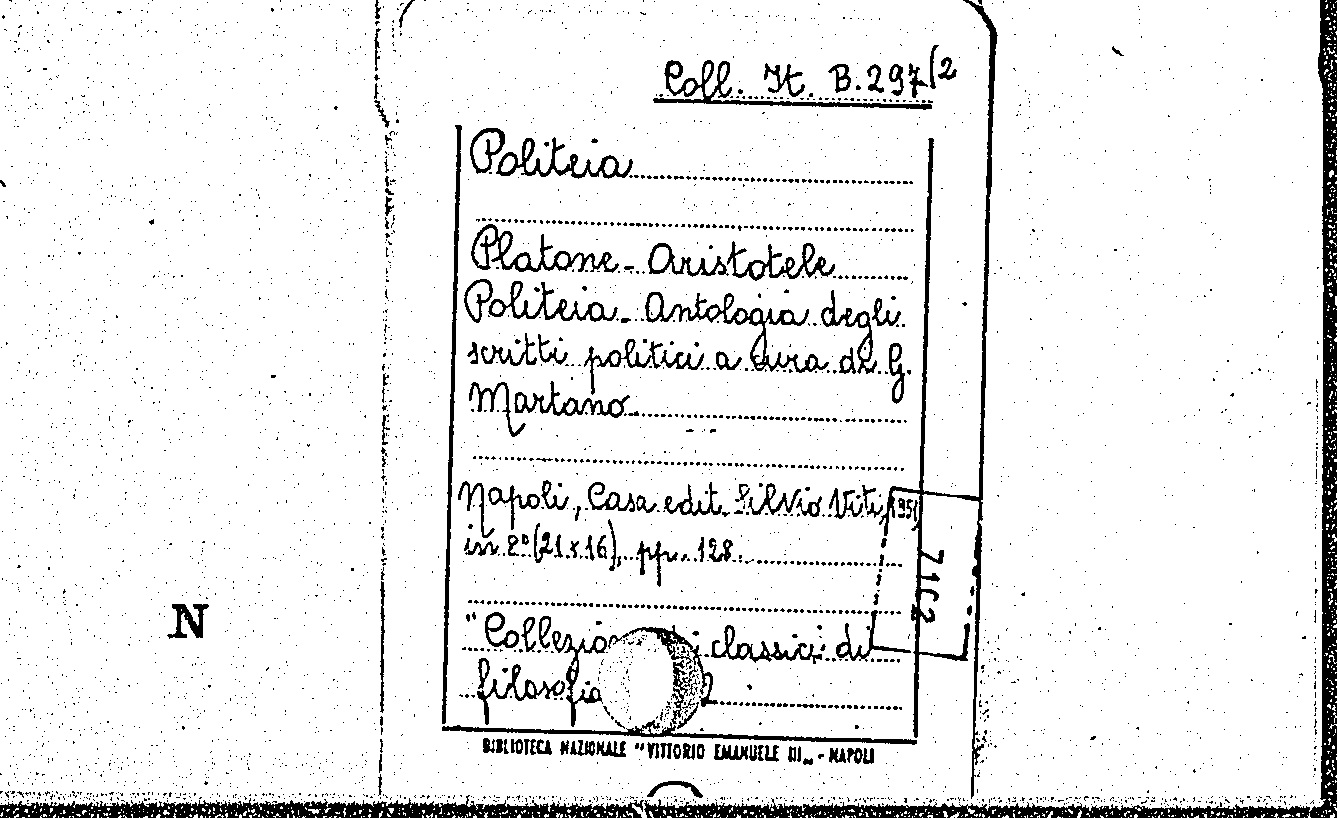 Coll. It. B.297/2
Politeia
Platone - Aristotele
Politeia - Antologia degli
scritti politici a cura di G.
Martano.
Napoli, Casa edit. Silvio Viti, 1951
in 8° (21x16), pp. 128.
7162
N
"Collezio i classici di
filosofia 2
BIBLIOTECA NAZIONALE "VITTORIO EMANUELE III„ - NAPOLI